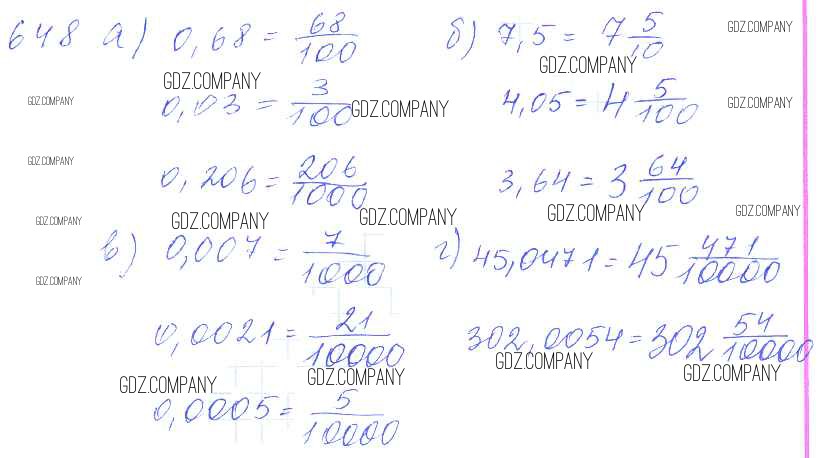 648 а) 0,68 = 68/100 б) 7,5 = 7 5/10 GDZ.COMPANY
GDZ.COMPANY GDZ.COMPANY
GDZ.COMPANY 0,03 = 3/100 GDZ.COMPANY 4,05 = 4 5/100 GDZ.COMPANY
GDZ.COMPANY 0,206 = 206/1000 3,64 = 3 64/100
GDZ.COMPANY GDZ.COMPANY GDZ.COMPANY GDZ.COMPANY GDZ.COMPANY
в) 0,007 = 7/1000 г) 45,0471 = 45 471/10000
GDZ.COMPANY
0,0021 = 21/10000 302,0054 = 302 54/10000
GDZ.COMPANY GDZ.COMPANY GDZ.COMPANY GDZ.COMPANY
0,0005 = 5/10000